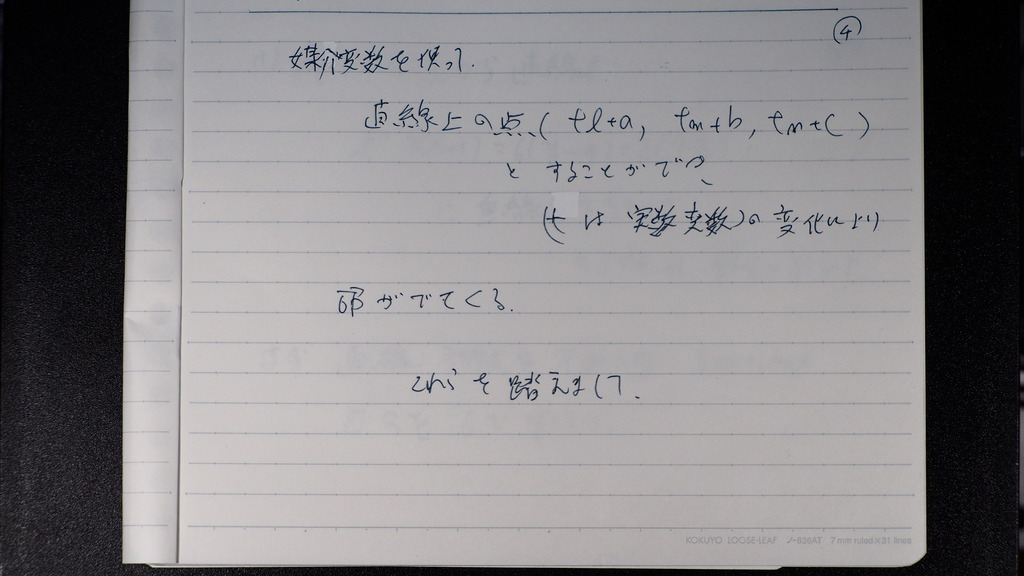 ④
媒介変数を使って.
直線上の点 ( tl+a, tm+b, tn+c )
とすることができ、
(t は 実数変数)の変化により
がでてくる.
これらを踏えまして.
KOKUYO LOOSE-LEAF ノ-836AT 7 mm ruled×31 lines